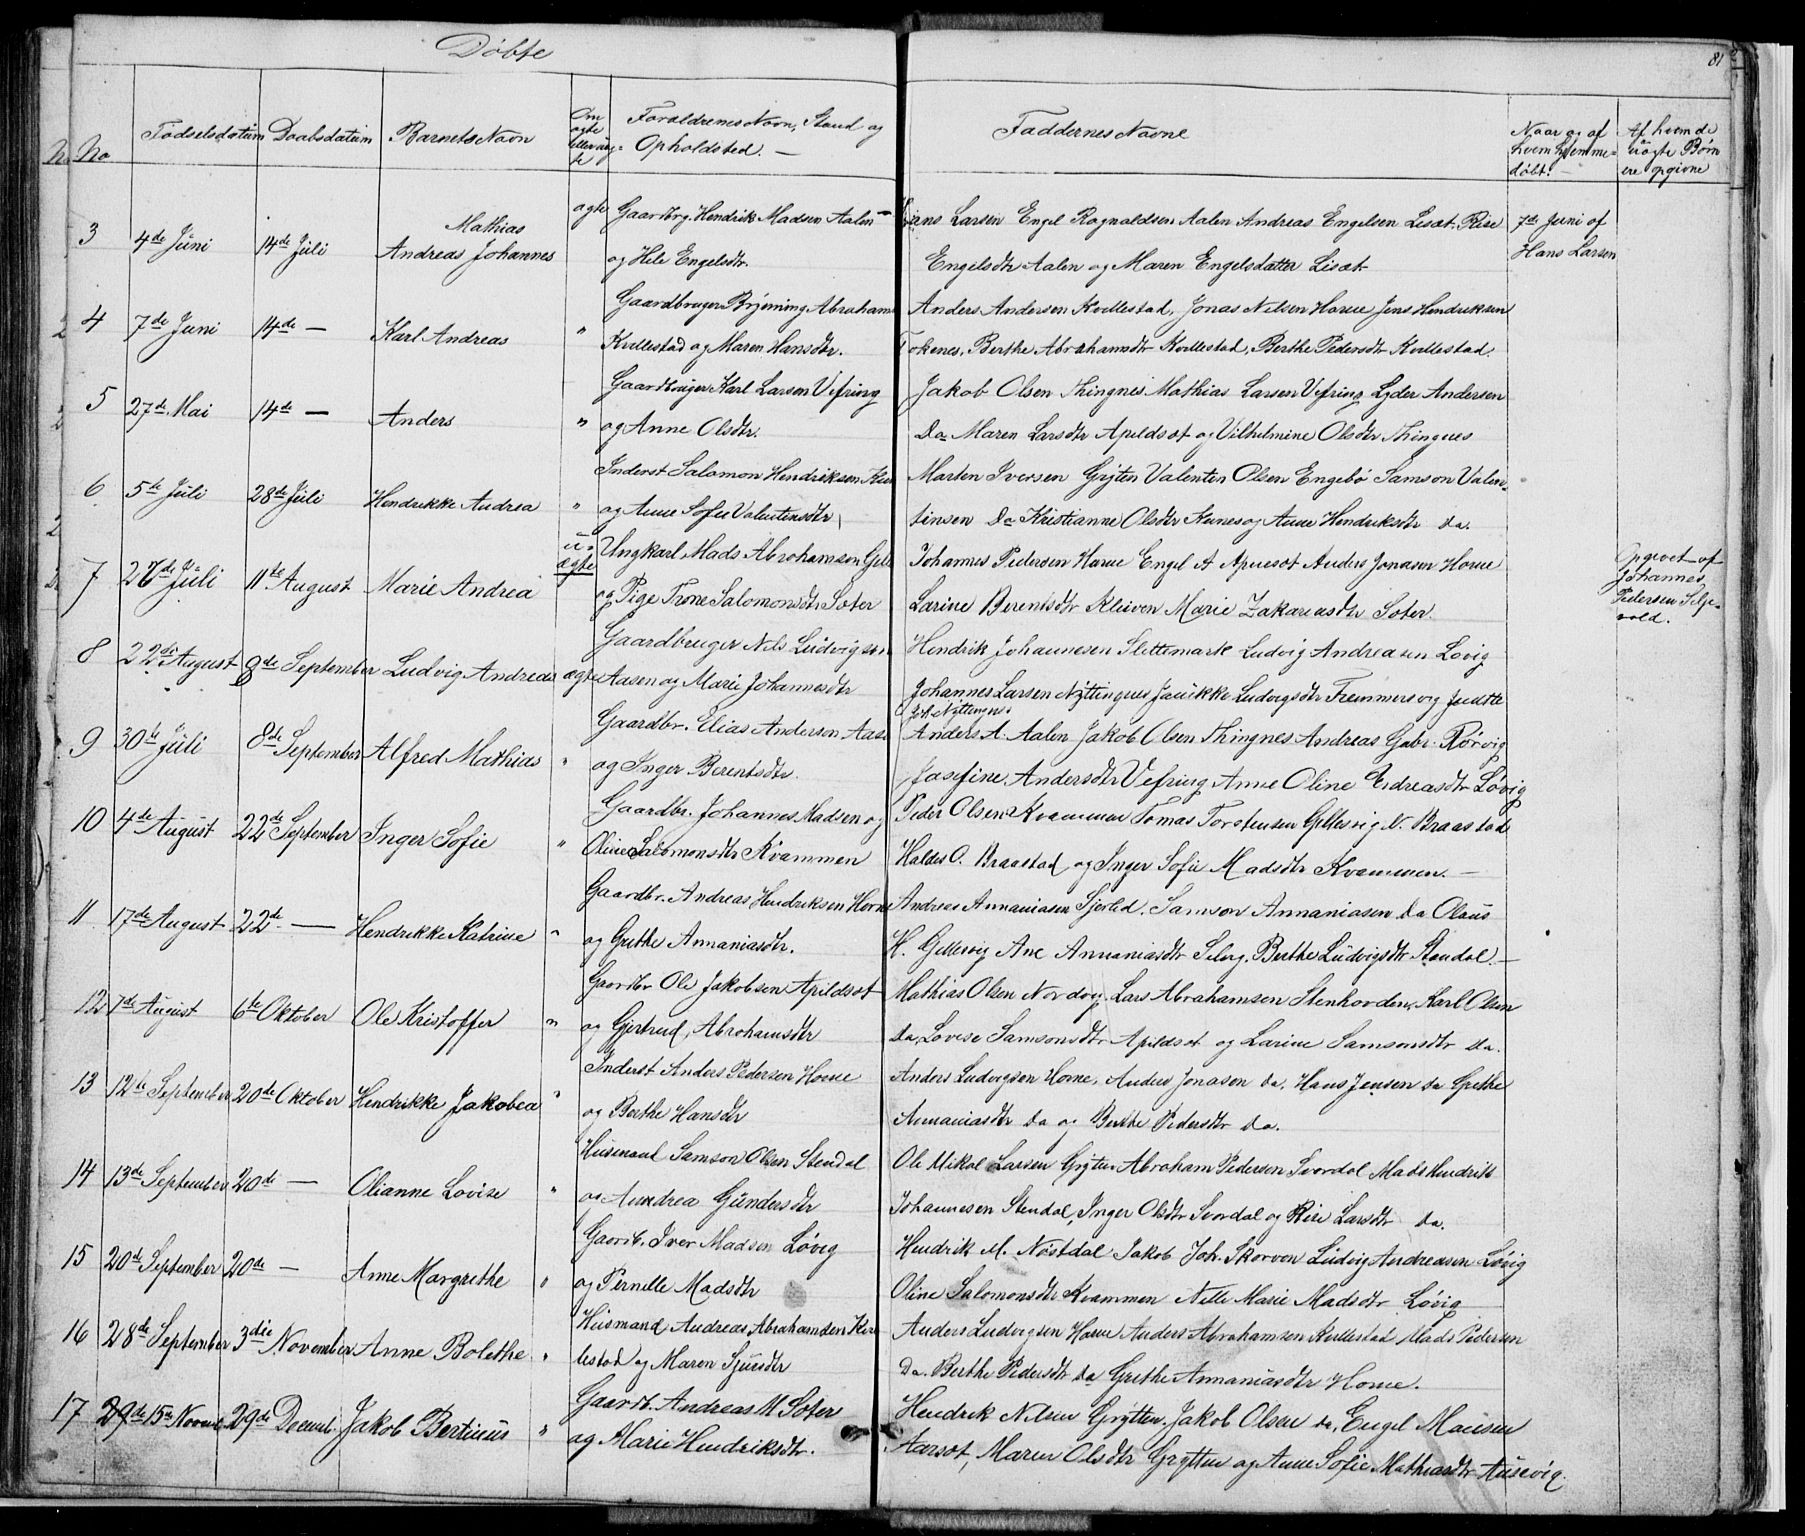 Døbte
81
No
Fødselsdatum
Daabsdatum
Barnets Navn
Om
ægte
eller uæg=
te
Forældrenes Navn, Stand og
Opholdsted. —
Faddernes Navne
Naar og af
hvem hjemme=
døbt. —
Af hvem de
uægte Børn
ere opgivne
3 4de Juni 14de Juli Mathias
Andreas Johannes
ægte Gaardbrg. Hendrik Madsen Aalen
og Hele Engelsdtr.
Hans Larsen Engel Ragnaldsen Aalen Andreas Engelsen Lisæt. Rise
Engelsdtr Aalen og Maren Engelsdatter Lisæt
7de Juni af
Hans Larsen
4 7de Juni 14de — Karl Andreas "
Gaardbruger Brynning Abraham
Kvllestad og Maren Hansdtr.
Anders Andersen Kvllestad, Jonas Nilsen Horne Jens Hendriksen
Tokenes, Berthe Abrahamsdtr Kvllestad, Berthe Pedersdtr Kvllestad.
5 27de Mai 14de — Anders "
Gaardbruger Karl Larsen Vefring
og Anne Olsdtr.
Jakob Olsen Thingnes Mathias Larsen Vefring Lyder Andersen
Do Maren Larsdtr Apeldsæt og Vilhelmine Olsdtr Thingnes
6 5te Juli 28de Juli Hendrikke Andrea "
Inderst Salomon Hendriksen
og Anne Sofie Valentensdtr
Marten Iversen Grytten Valenten Olsen Engebø Samson Valen=
tinsen Do Kristianne Olsdtr og Anne Hendriksdtr do.
7 26de Juli 11te August Marie Andrea u=
ægte
Ungkarl Mads Abrahamsen
og Pige Trone Salomonsdtr Soter
Johannes Pedersen Horne Engel A Anders Jonasen Horne
Larine Berentsdtr Kleiven Marie Zakariasdtr Soter.
Opgivet af
Johannes
Pedersen Selje=
vold.
8 22de August 8de September Ludvig Andreas ægte
Gaardbruger Nils Ludvigsen
Aasen og Marie Johannesdtr
Hendrik Johannesen Slettemark Ludvig Andreasen Løvig
Johannes Larsen Nyttingnes Jaiikke Ludvigsdtr Fremmersvig Judite
Joh. Nyttingnes
9 30te Juli 8de September Alfred Mathias "
Gaardbr. Elias Andersen Aase
og Inger Berentsdtr.
Anders A. Aalen Jakob Olsen Thingnes Andreas Gabr. Rørvig
Josefine Andersdtr Vefring Anne Oline Endreasdtr Løvig
10 4de August 22de September Inger Sofie "
Gaardbr. Johannes Madsen og
Oline Salomonsdtr Kvammen
Peder Olsen Kvammen Tomas Torstensen Gjellesvig N. Braastad
Haldes O. Braastad og Inger Sofie Madsdtr Kvammen. —
11 17de August 22de — Hendrikke Katrine "
Gaardbr. Andreas Hendriksen Horne
og Grethe Annaniasdtr.
Andreas Annaniasen Samson Annaniasen Do Olaus
H. Gjellesvig Ane Annaniasdtr Berthe Ludvigsdtr Standal. —
12 7de August 6te Oktober Ole Kristoffer "
Gaardbr Ole Jakobsen Apildsæt
og Gjertrud, Abrahamsdtr
Mathias Olsen Nordvig. Lars Abrahamsen Stenhovden, Karl Olsen
Do, Lovise Samsonsdtr Apildsæt og Larine Samsonsdtr do.
13 12te September 20de Oktober Hendrikke Jakobea "
Inderst Anders Pedersen Horne
og Berthe Hansdtr
Anders Ludvigsen Horne, Anders Jonasen do, Hans Jensen do Grethe
Annaniasdtr do og Berthe Pedersdtr do.
14 13de September 20de — Olianne Lovise "
Husmand Samson Olsen Stendal
og Anndrea Gundersdtr
Ole Mikal Larsen Grytten Abraham Pedersen Svordal Mads Hendrik
Johannesen Stendal, Inger Olsdtr Svordal og Rise Larsdtr do.
15 20de September 20de — Anne Margrethe "
Gaarb. Iver Madsen Løvig
og Pernelle Madsdtr
Hendrik M. Nøstdal Jakob Joh. Skorven Ludvig Andreasen Løvig
Oline Salomonsdtr Kvammen Nille Marie Madsdtr Løvig
16 28de September 3die November Anne Bolethe "
Husmand Andreas Abrahamsen Kvl
lestad og Maren Sjursdtr
Anders Ludvigsen Horne Anders Abrahamsen Kvllestad Mads Pedersen
Do. Berthe Pedersdtr do Grethe Annaniasdtr Horne.
17 29de 15de Novemb 29de Decemb. Jakob Bertinus "
Gaardb. Andreas M Soter
og Marie Hendriksdtr.
Hendrik Nilsen Grytten. Jakob Olsen do, Engel Monsen
Aarsæt, Maren Olsdtr Grytten og Anne Sofie Mathiasdtr Ausevig.